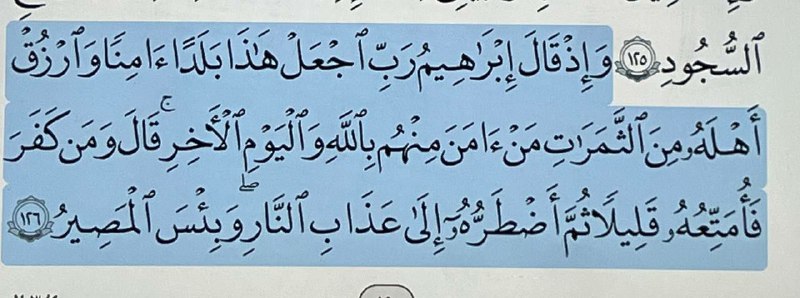 ٱلسُّجُودِ ١٢٥ وَإِذْ قَالَ إِبْرَٰهِـۧمُ رَبِّ ٱجْعَلْ هَـٰذَا بَلَدًا ءَامِنًا وَٱرْزُقْ
أَهْلَهُۥ مِنَ ٱلثَّمَرَٰتِ مَنْ ءَامَنَ مِنْهُم بِٱللَّهِ وَٱلْيَوْمِ ٱلْأَخِرِ ۚ قَالَ وَمَن كَفَرَ
فَأُمَتِّعُهُۥ قَلِيلًا ثُمَّ أَضْطَرُّهُۥٓ إِلَىٰ عَذَابِ ٱلنَّارِ ۖ وَبِئْسَ ٱلْمَصِيرُ ١٢٦